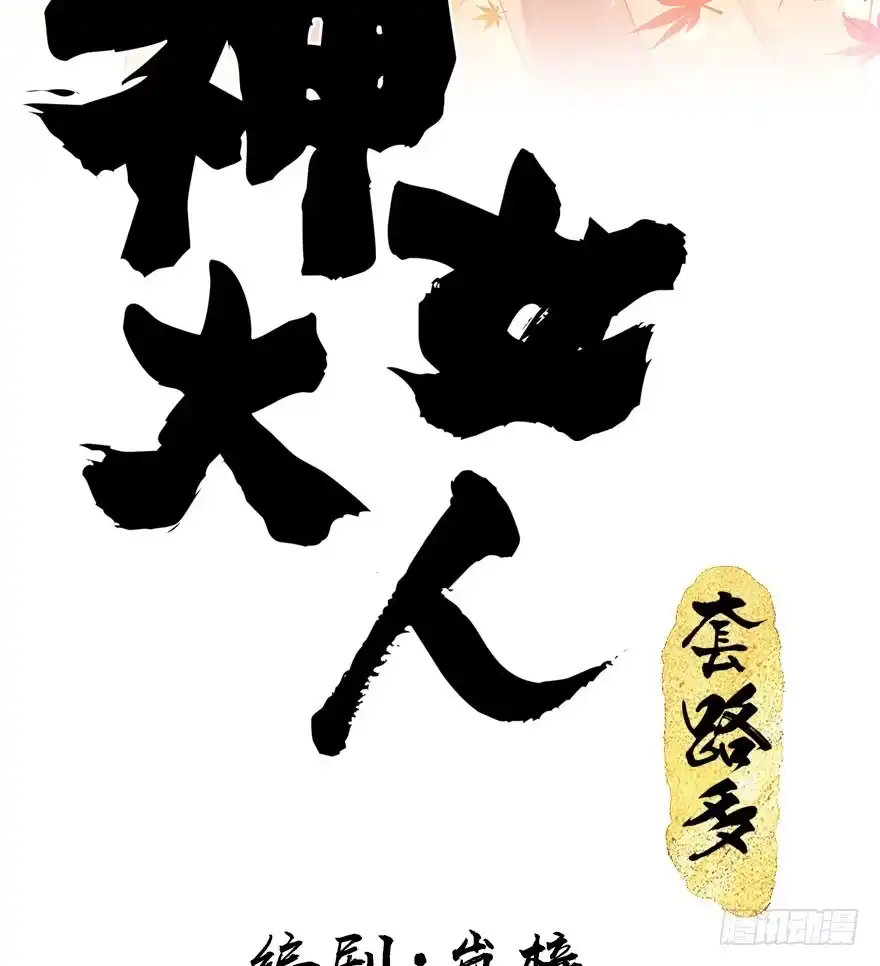 神女
大人
套路多
编剧：炭梓
腾讯动漫